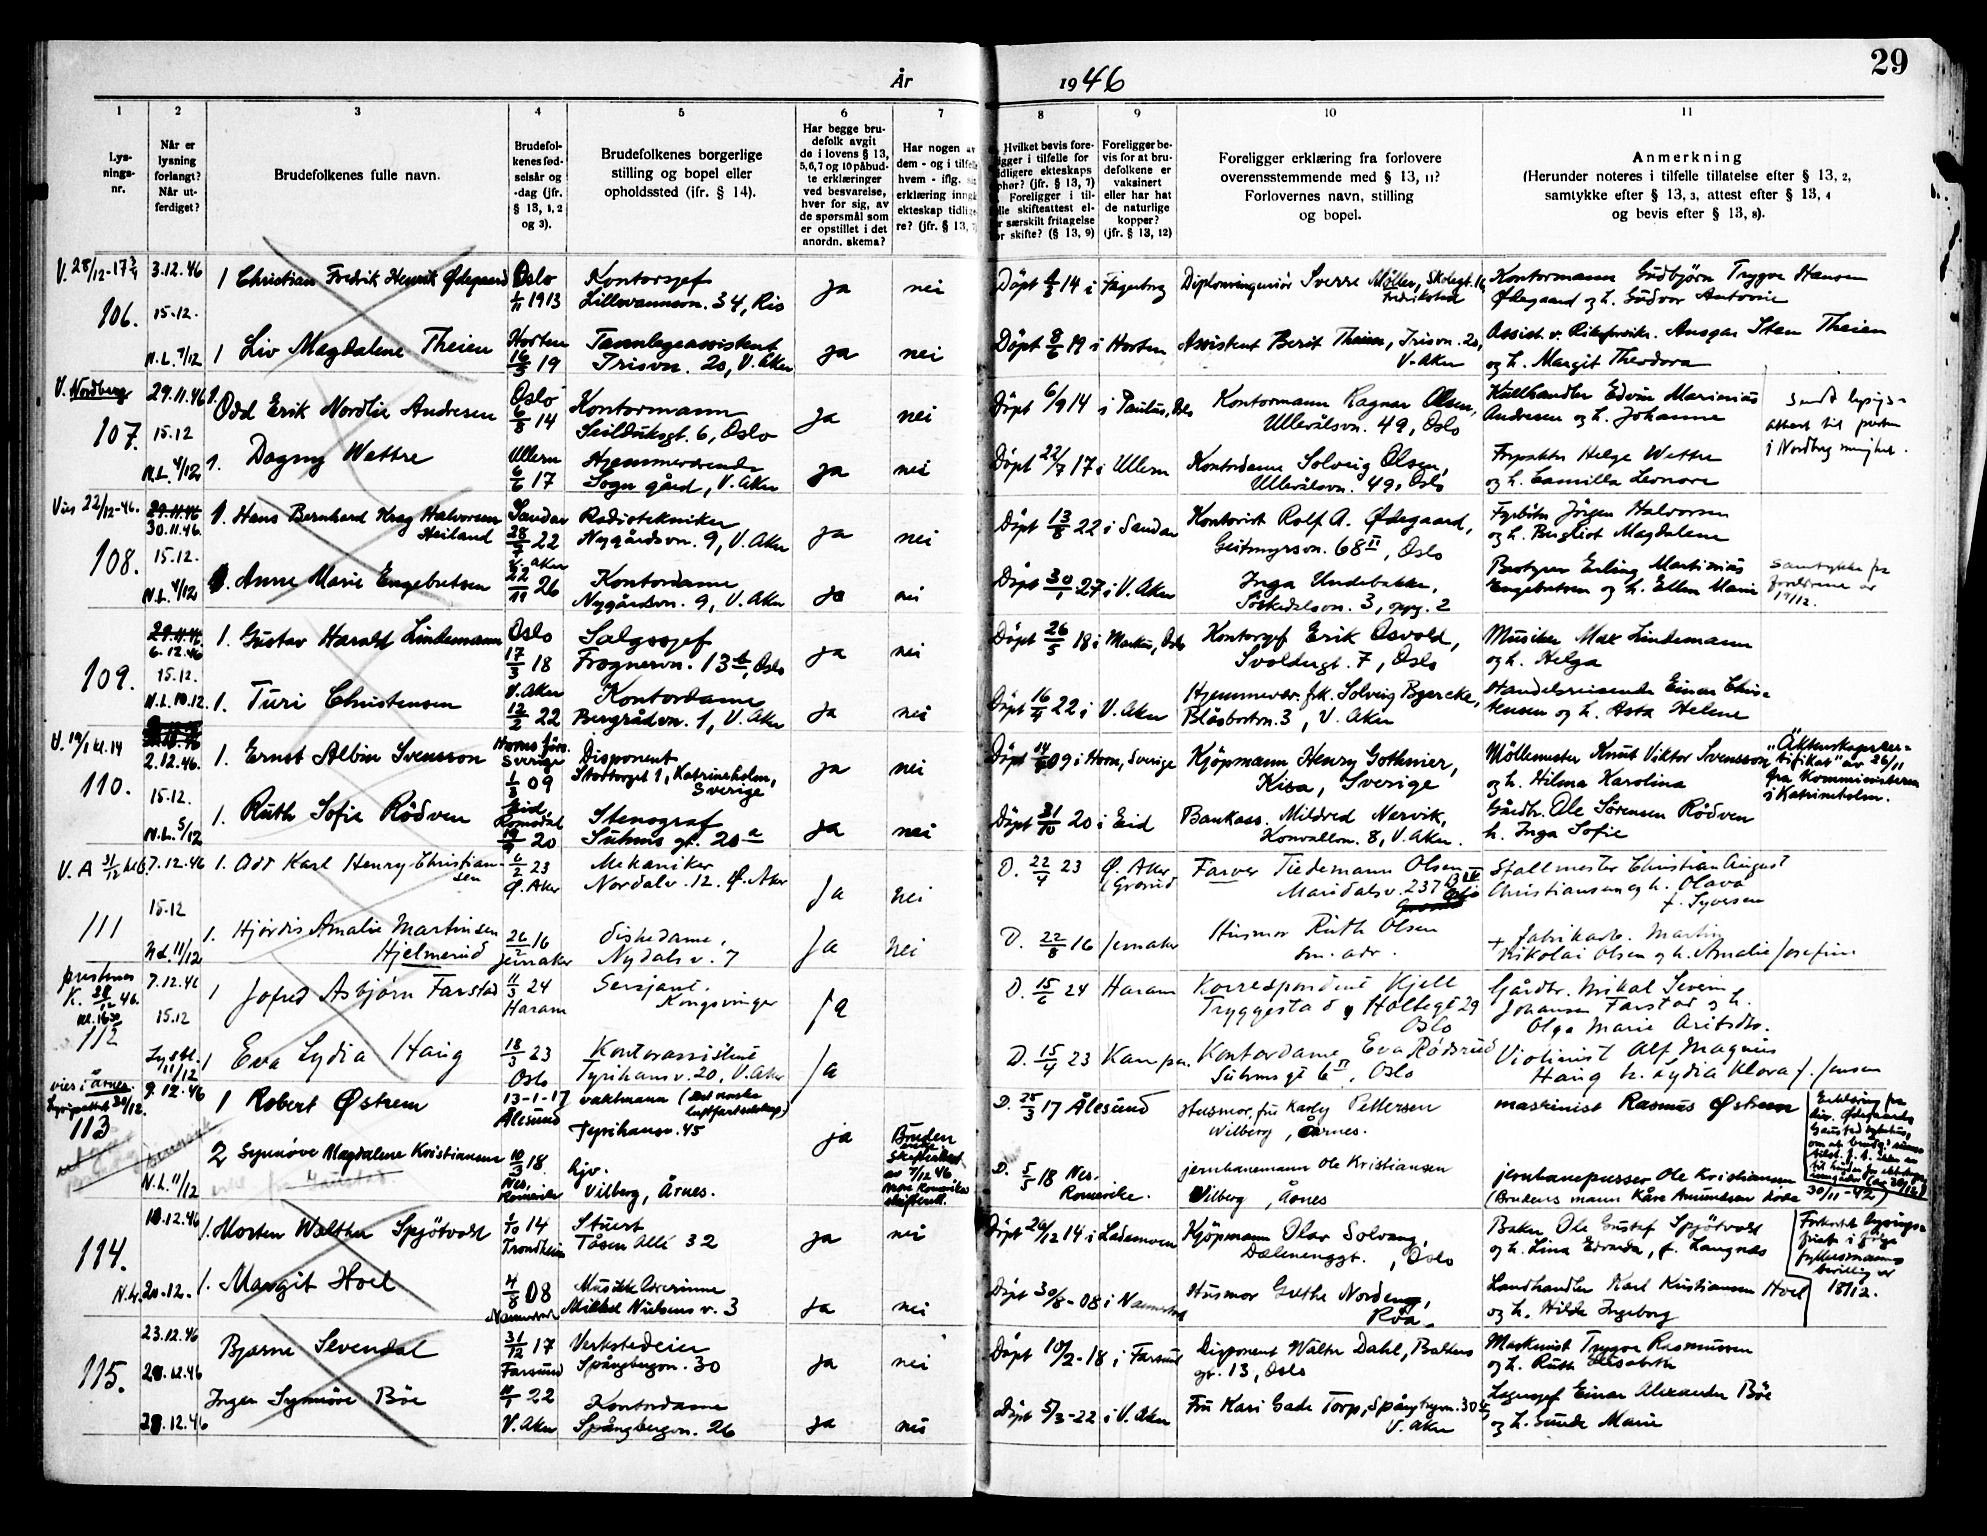 29
År 1946
1 2 3 4 5 6 7 8 9 10 11
Lys-
nings-
nr.
Når er
lysning
forlangt?
Når ut-
ferdiget?
Brudefolkenes fulle navn.
Brudefol-
kenes fød-
selsår og
-dag (jfr.
§ 13, 1, 2
og 3).
Brudefolkenes borgerlige
stilling og bopel eller
opholdssted (ifr. § 14).
Har begge bru-
defolk avgit
de i lovens § 13,
5,6,7 og 10 påbud-
te erklæringer
ved besvarelse,
hver for sig, av
de spørsmål som
er opstillet i det
anordn. skema?
Har nogen av
dem - og i tilfelle
hvem - iflg.
erklæring inngå
ekteskap tidlige
re? (jfr. § 13,
Hvilket bevis fore-
ligger i tilfelle for
tidligere ekteskaps
ophør? (jfr. § 13, 7)
Foreligger i til-
le skifteattest el-
r særskilt fritagelse
or skifte? (§ 13, 9)
Foreligger be-
vis for at bru-
defolkene er
vaksinert
eller har hat
de naturlige
kopper?
(jfr. § 13, 12)
Foreligger erklæring fra forlovere
overensstemmende med § 13, 11?
Forlovernes navn, stilling
og bopel.
Anmerkning
(Herunder noteres i tilfelle tillatelse efter § 13, 2,
samtykke efter § 13, 3, attest efter § 13, 4
og bevis efter § 13, 8).
V. 28/12-17
106.
3.12.46
15.12.
N.L. 7/12
1 Christian Fredrik Henrik Ødegaard
Oslo
1913
Kontorsjef
Lillevannsvn. 34, Ris
ja nei
Döpt 14 i Fagerborg
Diplomingeniör Sverre Möller, Skolegt. 10
Fredrikstad
Kontormann Gudbjörn Trygve Hansen
Ødegaard og h. Gudvor Antonie
1 Liv Magdalene Theien
Horten
16/3 19
Tannlegeassistent
Irisvn. 20, V. Aker
ja nei
Döpt 8/6 19 i Horten
Assistent Berit Theien, Irisvn. 20,
V. Aker
Assist. v. Ansgar Sten Theien
og h. Margit Theodora
V. Nordberg
107.
29.11.46
15.12
N.L. 4/12
1. Odd Erik Nordlie Andresen
Oslo
6/8 14
Kontormann
Seilduksgt. 6, Oslo
ja nei
Döpt 6/9 14 i Paulus, Oslo
Kontormann Ragnar Olsen,
Ullevålsvn. 49, Oslo
Kullhandler Edvin Marinius
Andresen og h. Johanne
Sendt lysnings-
attest til presten
i Nordberg menighet.
1. Dagny Wettre
Ullern
6/6 17
Hjemmeværende
Sogn gård, V. Aker
ja nei
Döpt 22/7 17 i Ullern
Kontordame Solveig Olsen,
Ullevålsvn. 49, Oslo
Forpakter Helge Wettre
og h. Camilla Leonore
Vies 22/12-46.
108.
29.11.46
30.11.46.
15.12.
N.L. 4/12
1. Hans Bernhard Krag Halvorsen
Heiland
Sandar
28/7 22
Radiotekniker
Nygårdsvn. 9, V. Aker
ja nei
Döpt 13/8 22 i Sandar
Kontorist Rolf A. Ødegaard,
Geitmyrsvn. 68 II, Oslo
Fyrböter Jörgen Halvorsen
og h. Bergliot Magdalene
1. Anne Marie Engebretsen
V. Aker
22/11 26
Kontordame
Nygårdsvn. 9, V. Aker
ja nei
Döpt 30/1 27 i V. Aker
Inga Undebakke,
Sörkedalsvn. 3, opg. 2
Bestyrer Erling Martinius
Engebretsen og h. Ellen Marie
Samtykke fra
foreldrene av
109.
29.11.46
6.12.46
15.12.
N.L. 10.12
1. Gustav Harald Lindemann
Oslo
17/3 18
Salgssjef
Frognervn. 13 b, Oslo
ja nei
Döpt 26/5 18 i Markus, Oslo
Kontorsjef Erik Osvold,
Svoldergt. 7, Oslo
Musiker Max Lindemann
og h. Helga
1. Turi Christensen
V. Aker
12/2 22
Kontordame
Bergrådvn. 1, V. Aker
ja nei
Döpt 16/4 22 i V. Aker
Hjemmevær. frk. Solveig Bjercke,
Blåsbortvn. 3, V. Aker
Handelsreisende Einar Chris-
tensen og h. Asta Helene
V. 19/1 kl. 14
110.
2.12.46.
15.12.
N.L. 5/12
1. Ernst Albin Svensson
Sverige
09
Disponent
Stortorget 1, Katrineholm,
Sverige
ja nei
Döpt 09 i Horn, Sverige
Kjöpmann Henry Gothnier,
Kisa, Sverige
Möllemester Knut Viktor Svensson
og h. Hilma Karolina
"Äktenskapscer-
tifikat" av 26/11
fra Komministeren
i Katrineholm.
1. Ruth Sofie Rödven
Eid
Romsdal
20
Stenograf
Suhms gt. 20 a
ja nei
Döpt 31/10 20 i Eid
Bankass. Mildred Nervik,
Konvallvn. 8, V. Aker.
Gårdbr. Ole Sörensen Rödven
h. Inga Sofie
V. A 31/12
111
7.12.46
15.12
N.L. 11/12
1. Odd Karl Henry Christian-
sen
6/2 23
Ø. Aker
Mekaniker
Nordalv. 12. Ø. Aker
Ja nei
D. 22/4 23
Ø. Aker
(Grorud
Farver Tiedemann Olsen
Maridalsv. 237
Oslo
Stallmester Christian August
Christiansen og h. Olava
f. Syversen
1. Hjördis Amalie Martinsen
Hjelmerud
16
Jevnaker
diskedame,
Nydalsv. 7
Ja nei
D. 22/8 16 Jevnaker
Husmor Ruth Olsen
sm. adr.
+ Fabrikarb. Martin
Nikolai Olsen og h. Amalie Josefine
prestenes
K. 28/12 46.
kl. 16 30
112
7.12.46
15.12
Lysbl.
11/12
1 Jofred Asbjörn Farstad
11/3 24
Haram
Sersjant.
Kongsvinger
Ja
D. 15/6 24 Haram
Korrespondent Kjell
Tryggestad, Holtegt 29
Oslo
Gårdbr. Mikal Severin
Johansen Farstad og h.
Olga Marie
1 Eva Lydia Haug
18/3 23
Oslo
Kontorassistent
Tyrihansv. 20, V. Aker
Ja
D. 15/4 23 Kampen.
Kontordame Eva Rödsrud
Suhms gt 6 II, Oslo
Violinist Alf Magnus
Haug h. Lydia Klara f. Jensen
vies i Årnes.
113
9.12.46
N.L. 11/12
1 Robert Østrem
13-1-17
Ålesund
vaktmann (Det norske
luftfartselskap)
Tyrihansv. 45
ja
D. 25/3 17 Ålesund
Husmor, fru Karly Pettersen
Vilberg, Årnes.
maskinist Rasmus Østrem
2 Synnöve Magdalene Kristiansen
10/3 18
Nes,
Romerike
hjv.
Vilberg, Årnes.
Bruden
enke
Skifteattest
av 7/12 46
Nore Romerike
skifterett.
D. 5/5 18 Nes.
Romerike.
jernbanemann Ole Kristiansen
Vilberg, Årnes
jernbanepusser Ole Kristiansen
(Brudens mann Kåre Amundsen döde 30/11-42)
114.
10.12.46
N.L. 20.12.
1. Morten Walther Spjötvold
1/10 14
Trondheim
Stuert
Tåsen Allé 32
ja nei
Döpt 26/12 14 i Lademoen
Kjöpmann Olav Solvang,
Dælenenggt. , Oslo
Baker Ole Gustaf Spjötvold
og h. Lina Edvarda, f. Langnæs
Forkortet lysnings-
frist i følge
fylkesmanns
bevilling av
18/12.
1. Margit Hoel
4/8 08
Musikklærerinne
Mikkel Nielsens v. 3
ja nei
Döpt 30/8-08 i
Husmor Grethe Nordeng,
Röa.
Landhandler Karl Kristiansen Hoel
og h. Hilda Ingeborg
115.
23.12.46
28.12.46
28.12.46
Bjarne Sevendal
31/12 17
Farsund
Verkstedeier
Spångbergvn. 30
ja nei
Döpt 10/2-18 i Farsund
Disponent Walter Dahl, Balders
gt. 13, Oslo
Maskinist Trygve Rasmussen
og h. Ruth Elisabeth
Inger Synnöve Böe
22
V. Aker
Kontordame
Spångbergvn. 26
ja nei
Döpt 5/3-22 i V. Aker
Fru Kari Gade Torp, Spångbergvn. 30
V. Aker
Lagersjef Einar Alexander Böe
og h. Gunda Marie